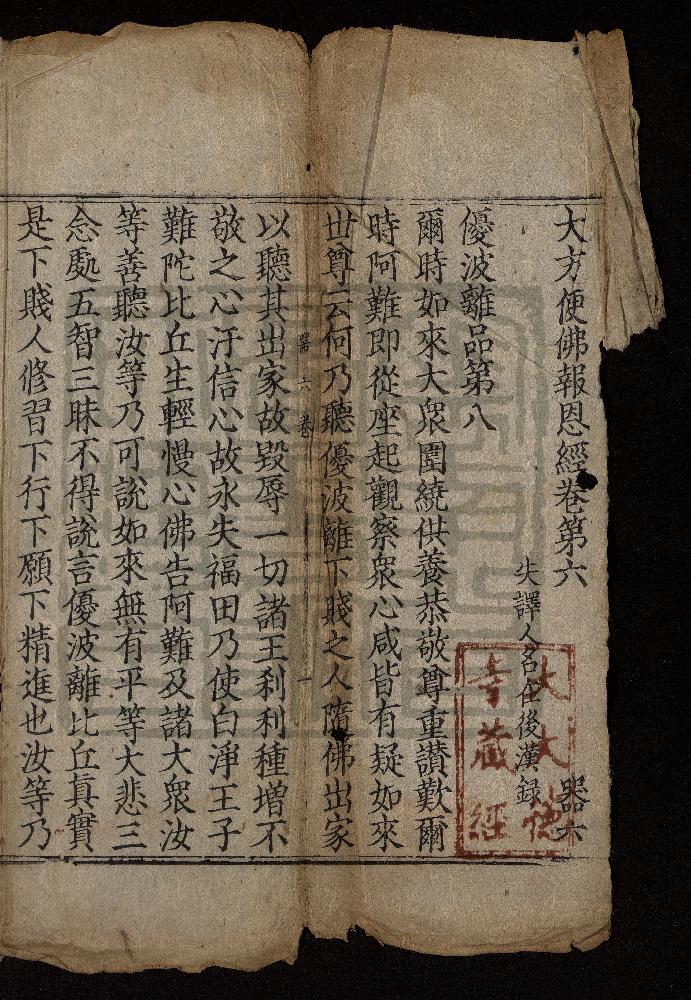 大方便佛報恩經卷第六
器六
失譯人名在後漢錄
優波離品第八
爾時如來大衆圍繞供養恭敬尊重讃歎爾
時阿難即從座起觀察衆心咸皆有疑如來
世尊云何乃聽優波離下賤之人隨佛出家
器六卷
一
以聽其出家故毀辱一切諸王刹利種增不
敬之心汙信心故永失福田乃使白淨王子
難陀比丘生輕慢心佛告阿難及諸大衆汝
等善聽汝等乃可說如來無有平等大悲三
念處五智三昧不得說言優波離比丘真實
是下賤人修習下行下願下精進也汝等乃
大大德
寺藏經